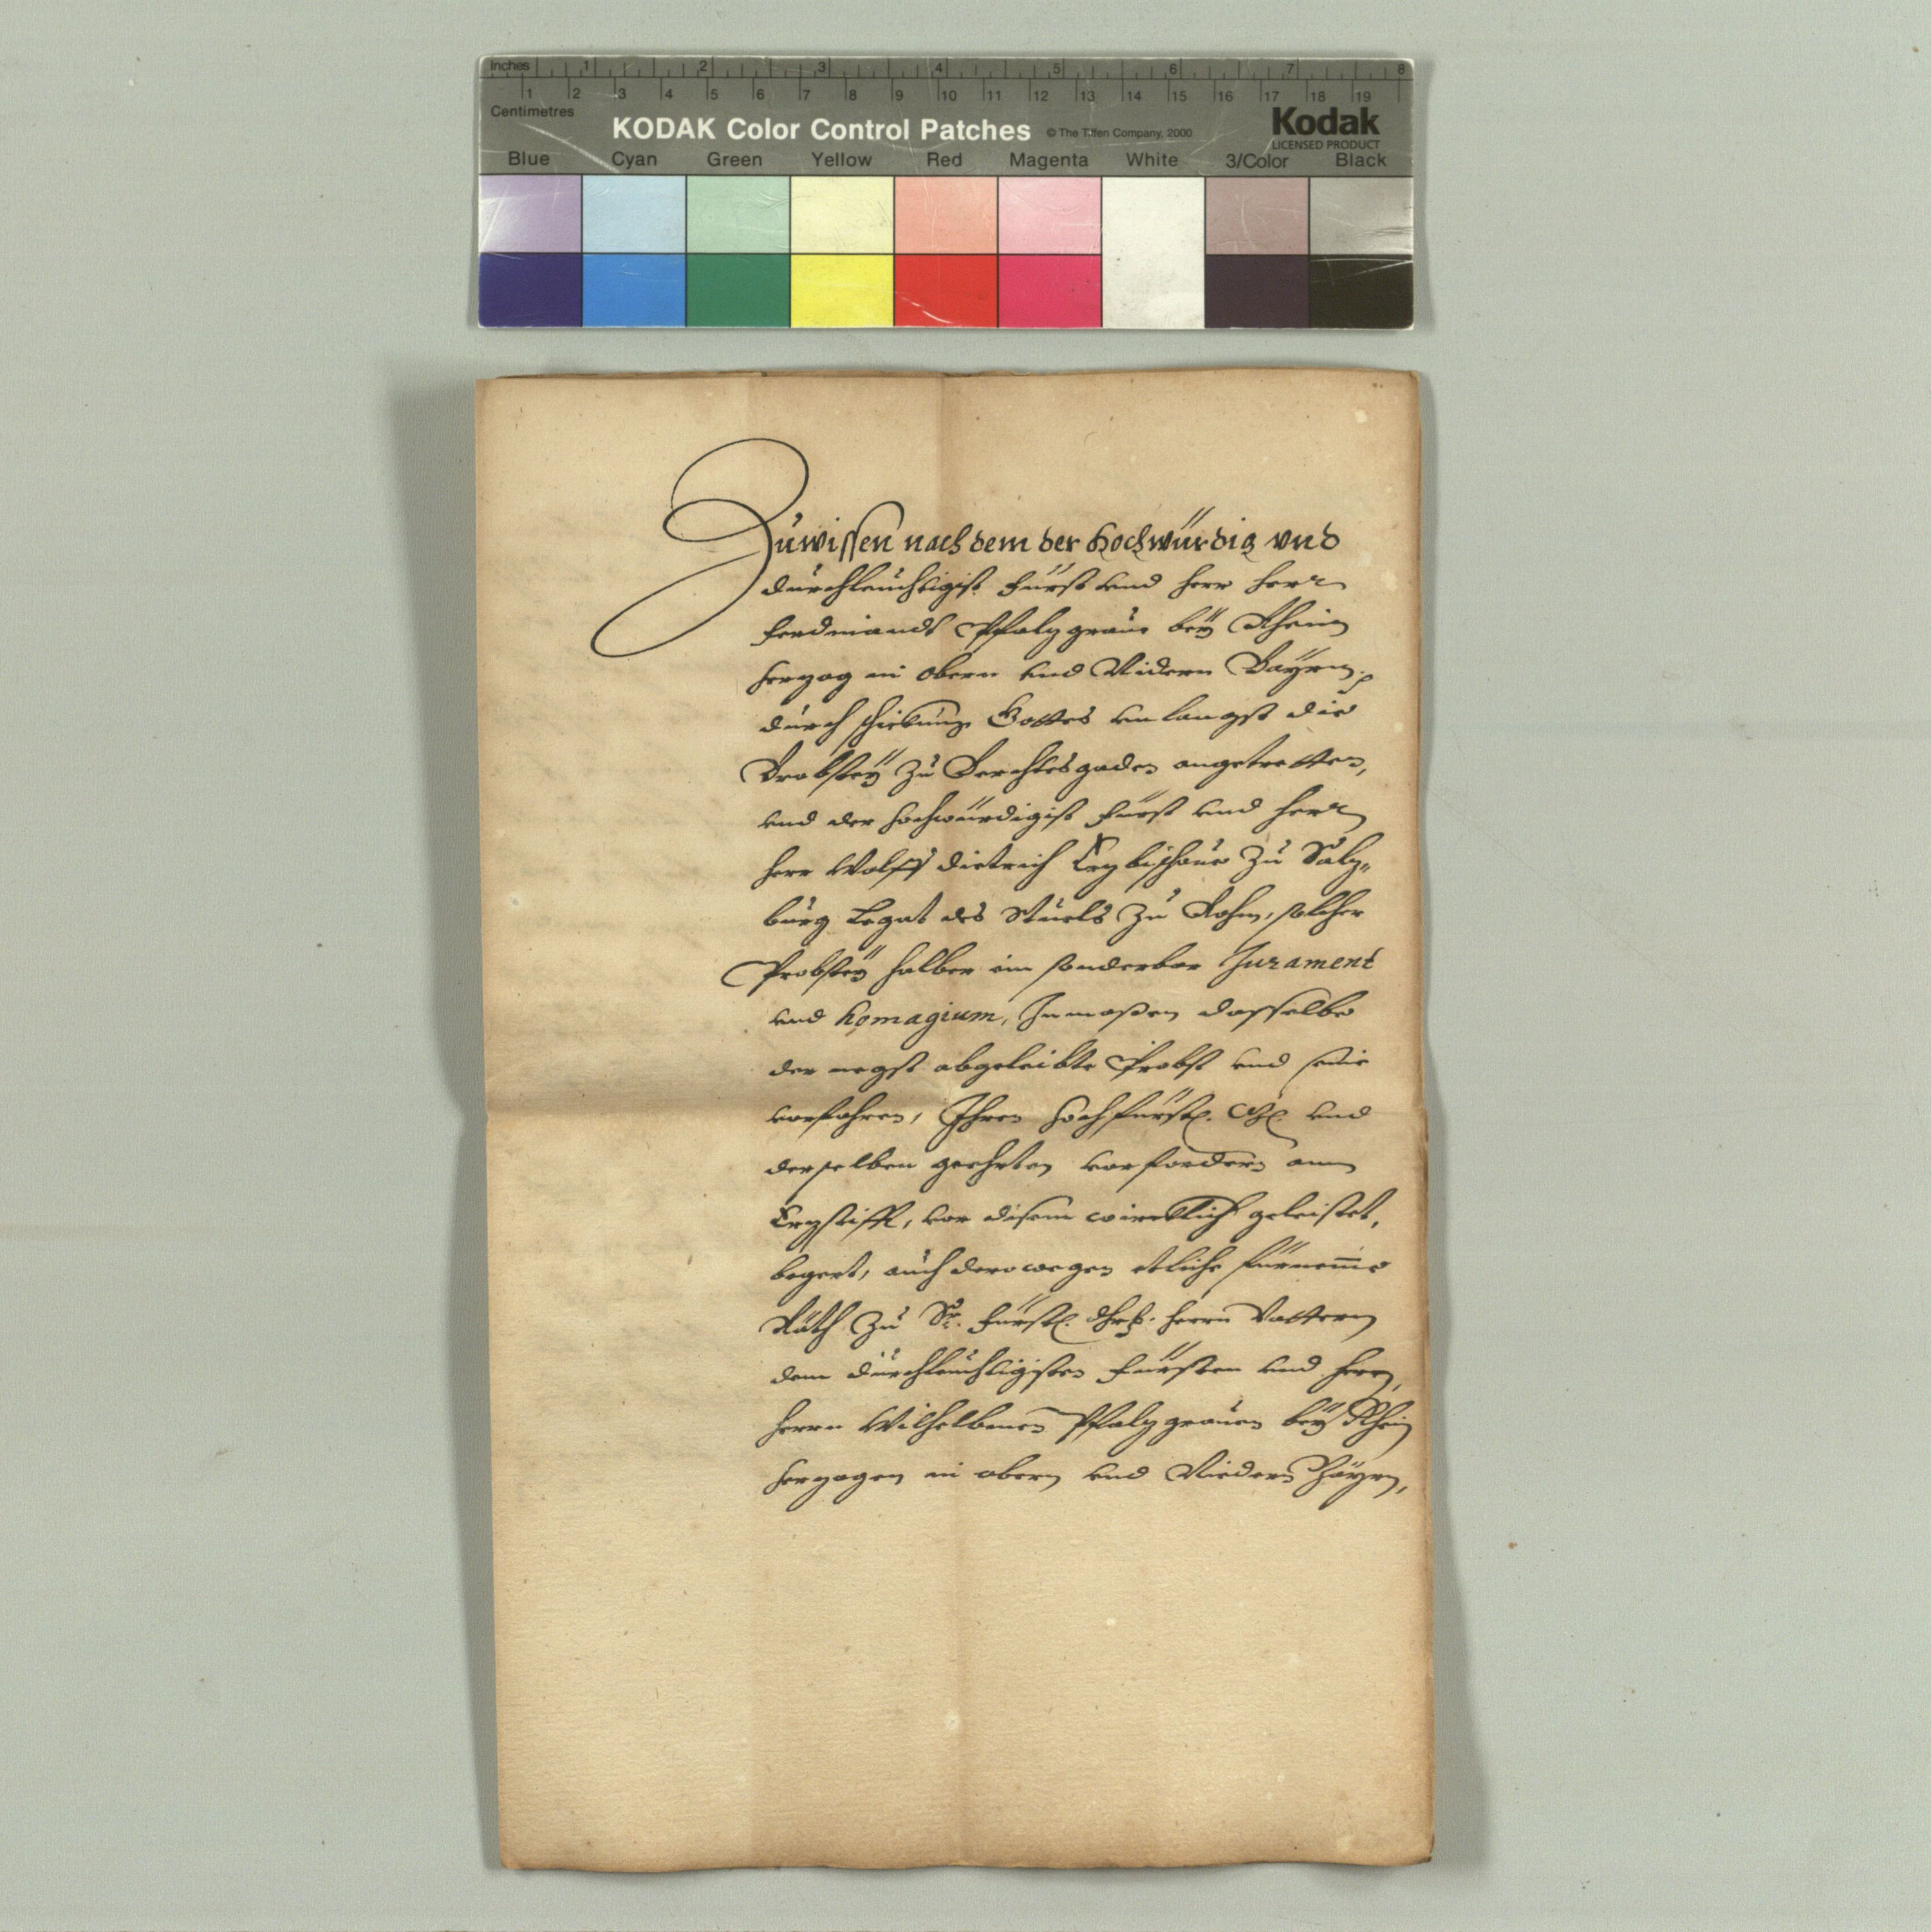 Inches 1 2 3 4 5 6 7 8
1 2 3 4 5 6 7 8 9 10 11 12 13 14 15 16 17 18 19
Centimetres
KODAK Color Control Patches © The Tiffen Company, 2000 Kodak
LICENSED PRODUCT
Blue Cyan Green Yellow Red Magenta White 3/Color Black
Zuwissen nach dem der Hochwürdig vnd
durchleuchtigist Fürst vnd herr herr
Ferdinandt Pfalzgraue bey Rhein
herzog in Obern vnd Nidern Bayrn
durch schickung Gottes vnlangst die
Brobstey zu Berchtesgaden angetretten,
vnd der hochwürdigist Fürst vnd herr
herr Wolff Dietrich Erzbischoue zu Salz„
burg Legat des Stuels zu Rohm, solcher
Probstey halber ein sonderbar Jurament
vnd homagium, Inmaßen dasselbe
der negst abgeleibte Probst vnd seine
vorfahren, Ihren hochfürstl. vnd
derselben geehrten vorfordern am
Erzstifft, vor disem würcklich geleistet,
begert, auch derowegen etliche fürneme
Räth zu Sr. Fürstl. Drht. herrn Vattern
dem durchleuchtigisten Fürsten vnd herrn,
herrn Wilhelbmen Pfalzgrauen bey Rhein
herzogen in obern vnd Niedern Bayrn,